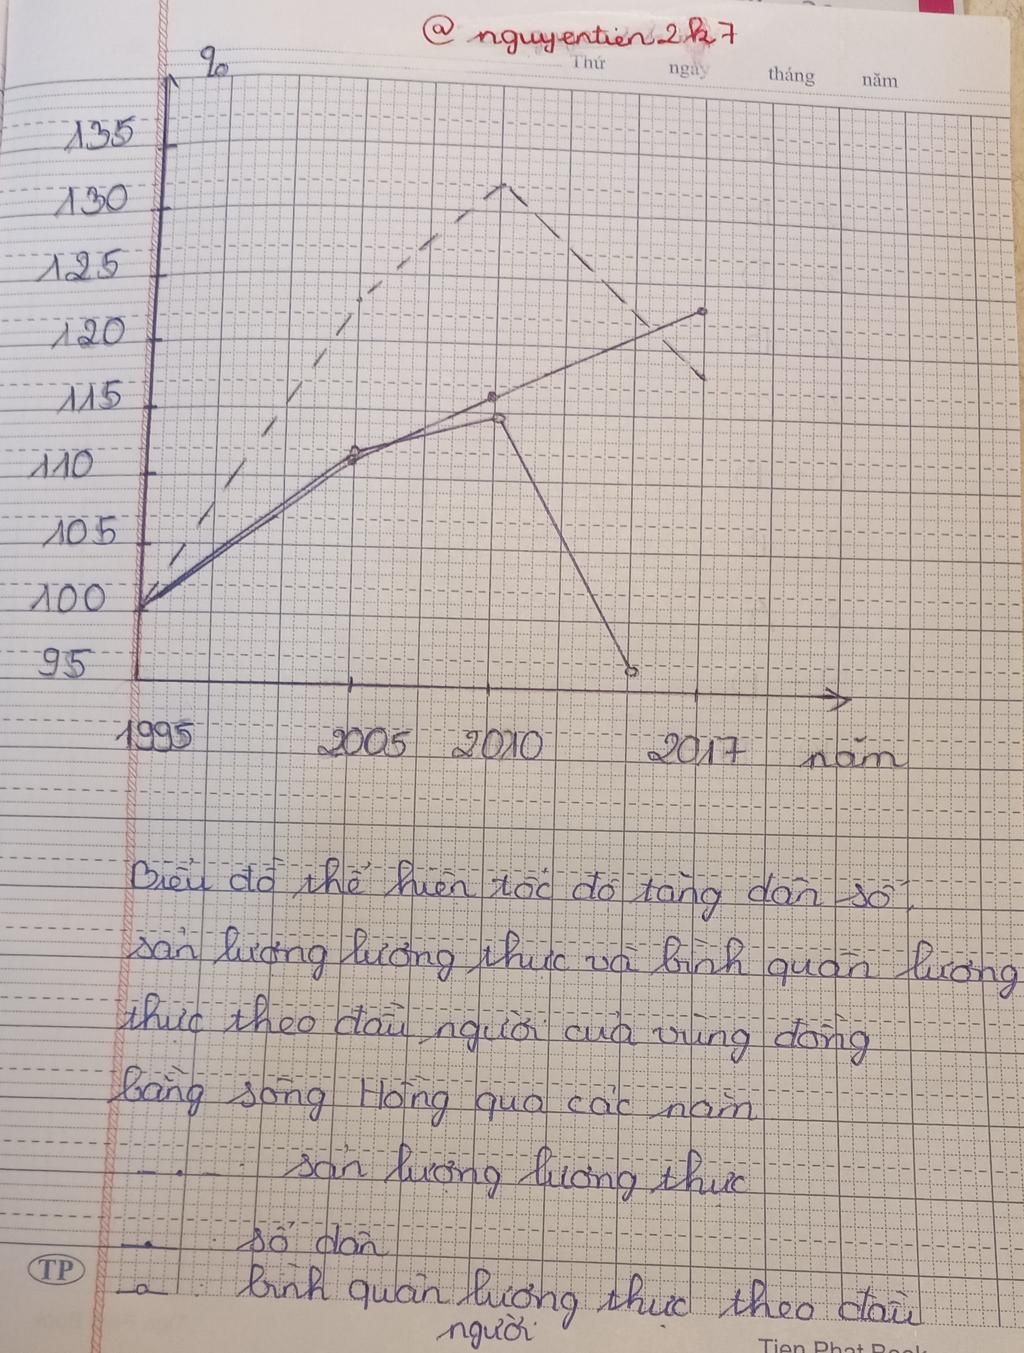 @ nguyentien.2k7
Thứ ngày tháng năm
%
135
130
125
120
115
110
105
100
95
1995 2005 2010 2017 năm
Biểu đồ thể hiện tốc độ tăng dân số,
sản lượng lương thực và bình quân lương
thực theo đầu người của vùng đồng
bằng sông Hồng qua các năm
sản lượng lương thực
số dân
TP
bình quân lương thực theo đầu
người
Tien Phat